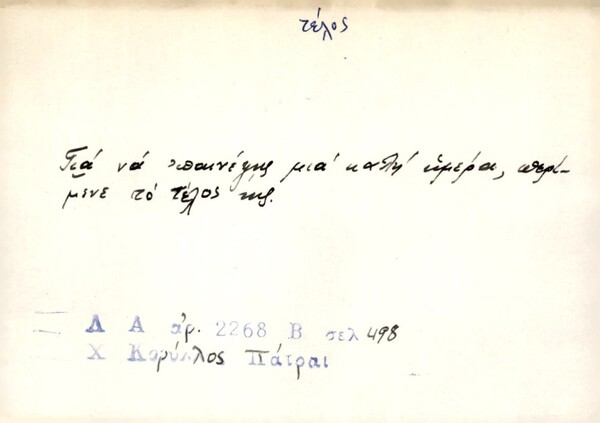 τέλος
Γιά νά παινέψης μιά καλή ἡμέρα, περί-
μενε τό τέλος της.
Λ Α ἀρ. 2268 Β σελ 498
Χ Κορύλλος Πάτραι